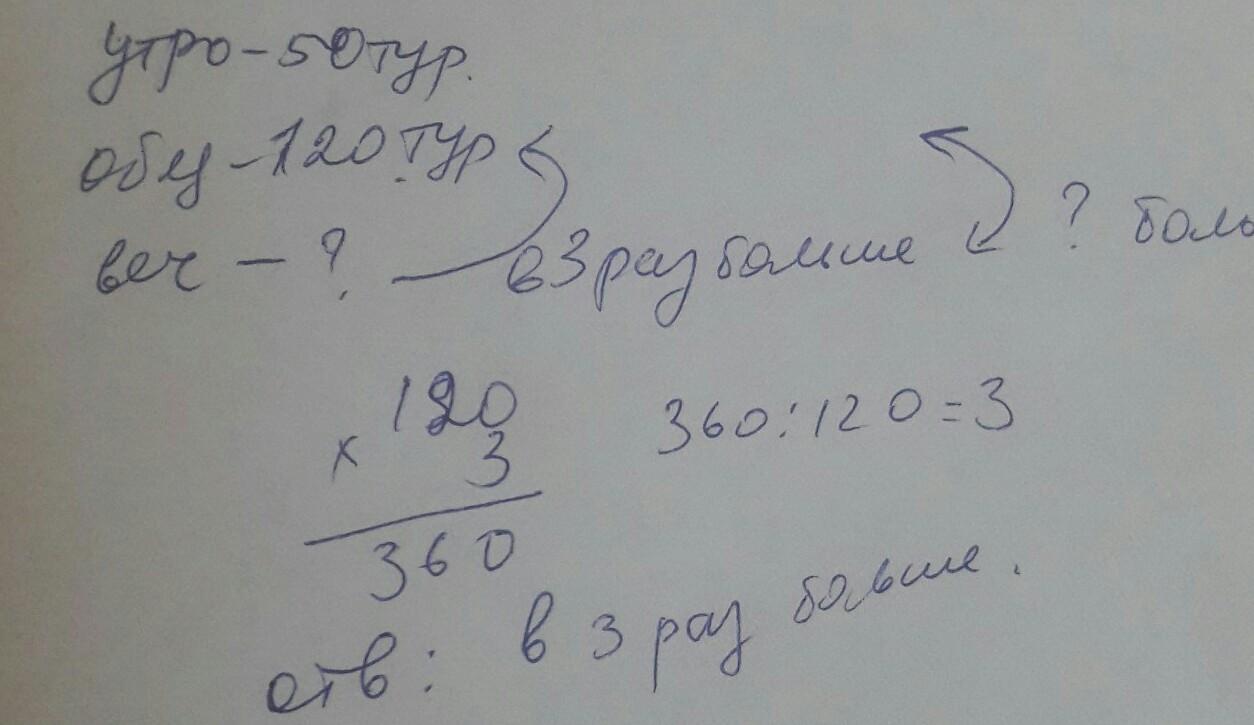 утро - 50 тур.
обец - 120 тур
веч - ? в 3 раз больше ? боль
120
x 3
360
360 : 120 = 3
отв: в 3 раз больше.